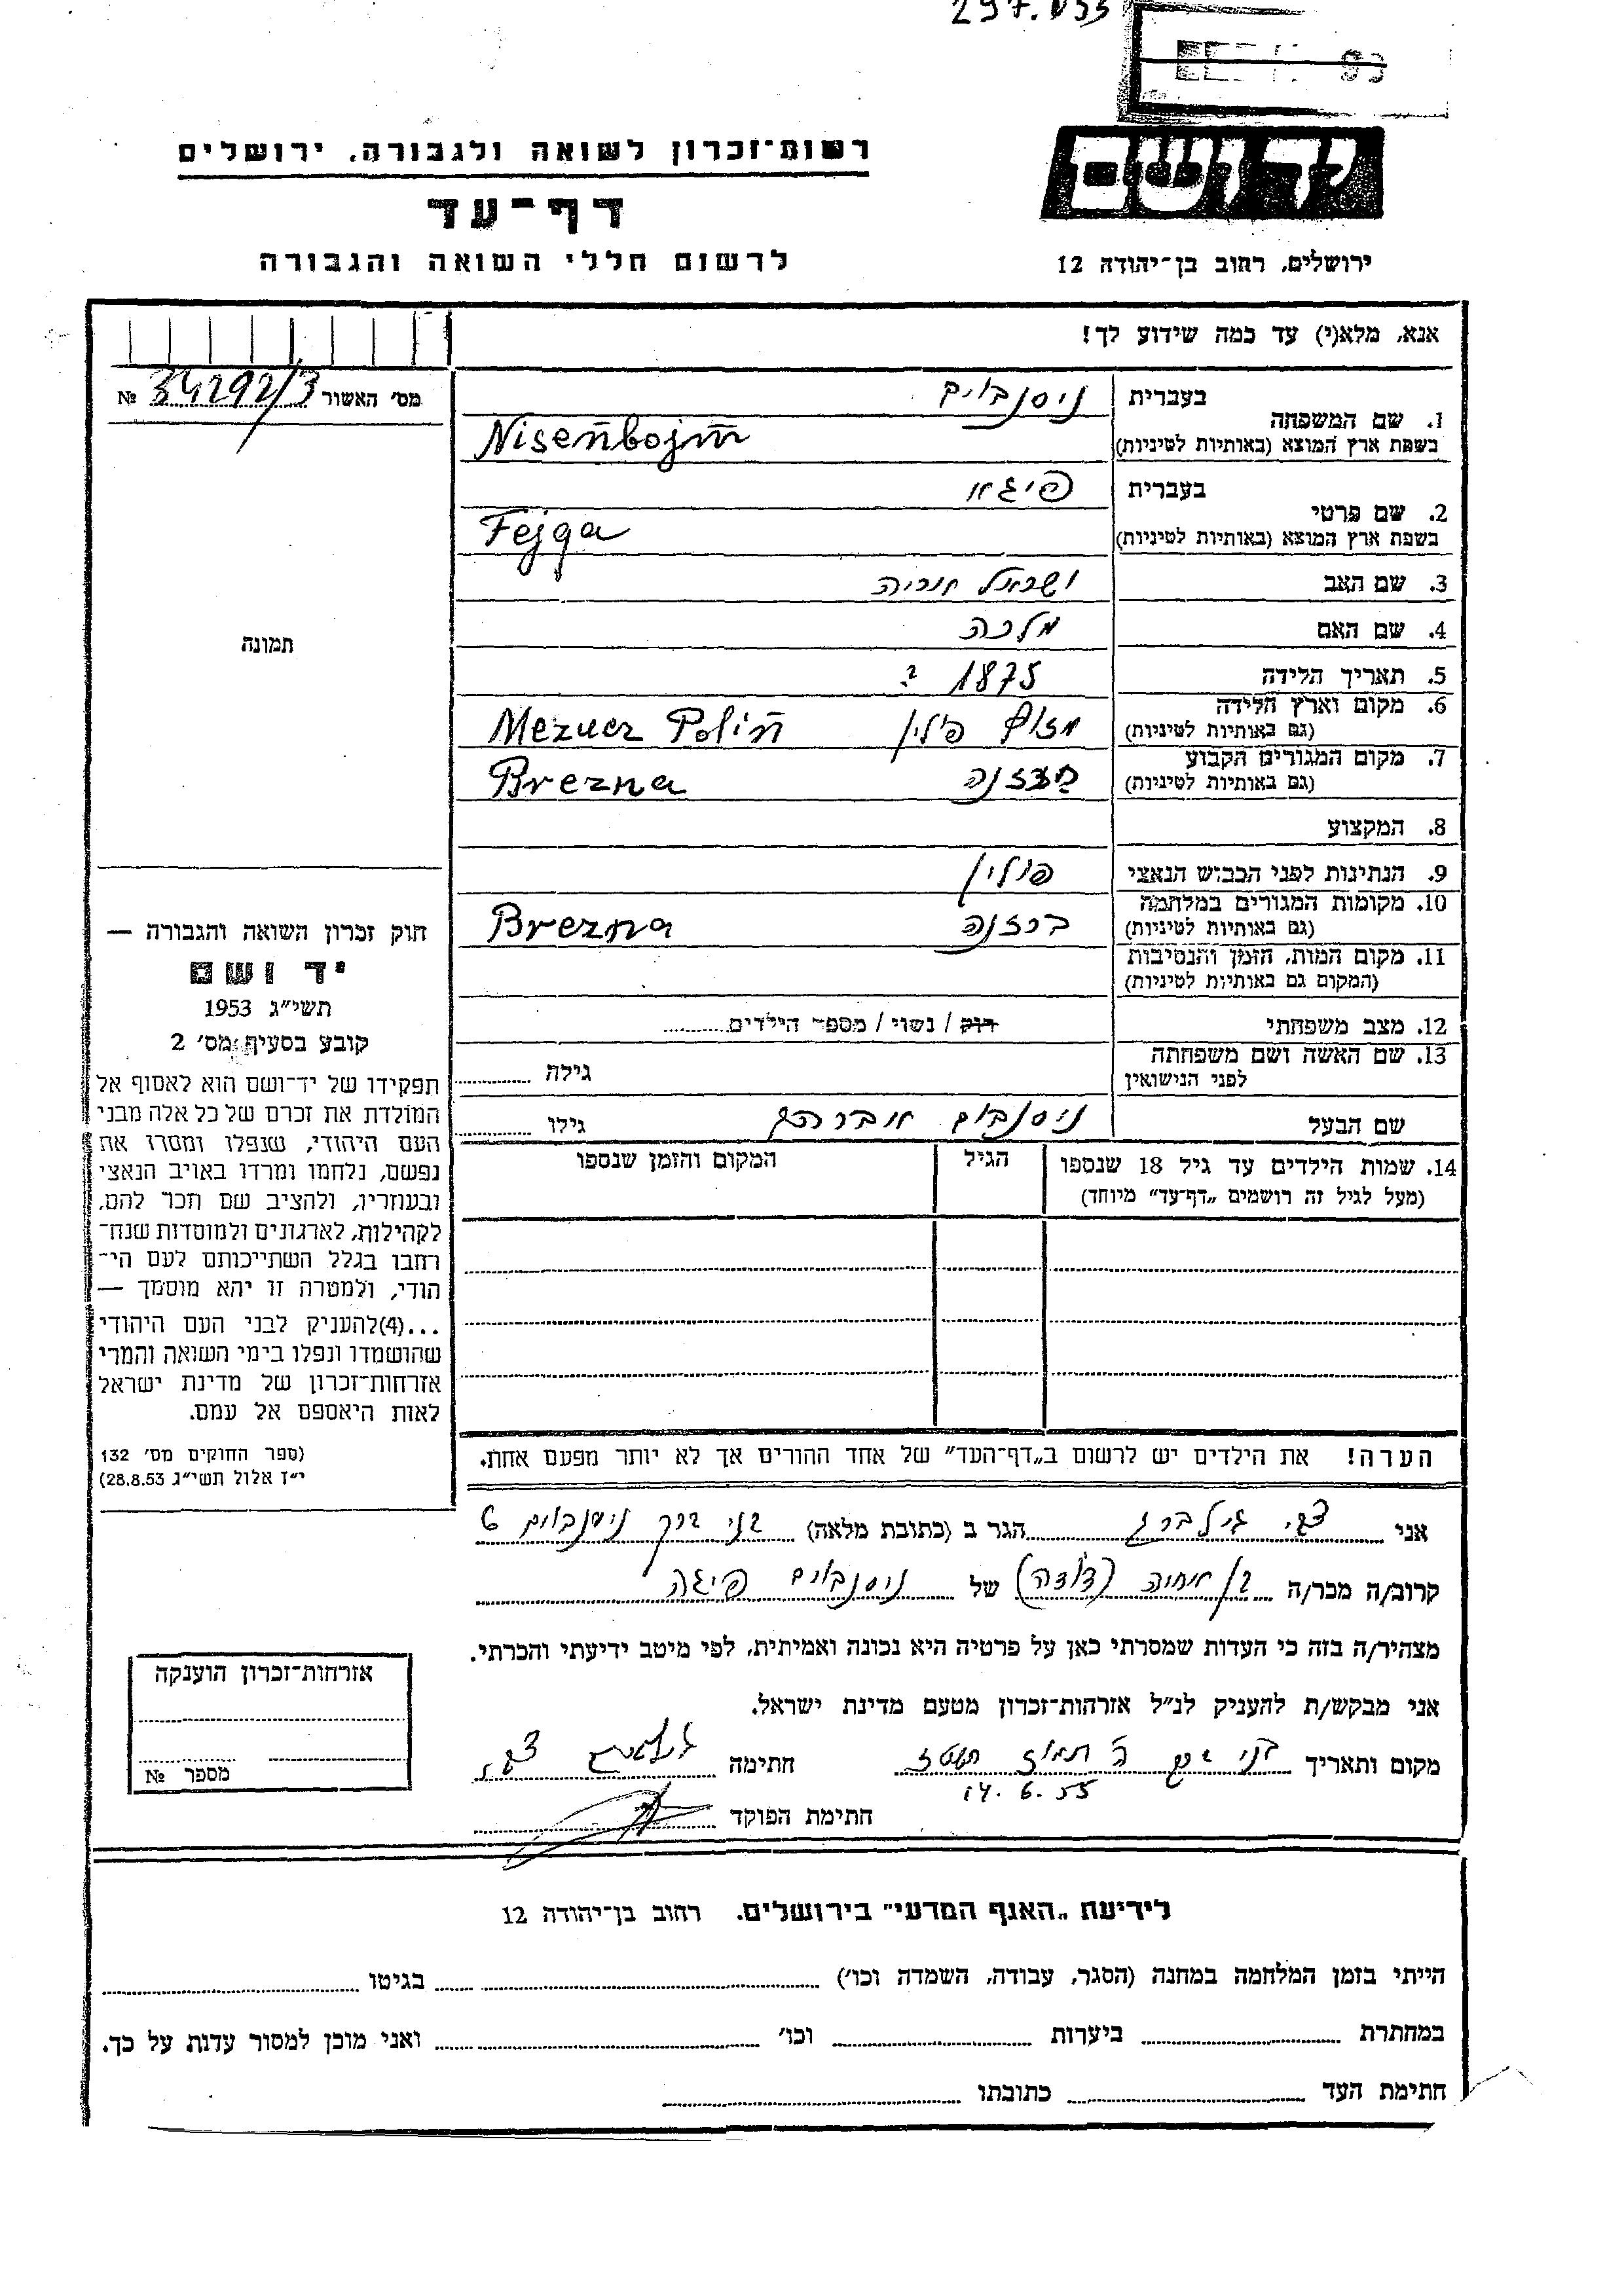 רשות־זכרון לשואה ולגבורה. ירושלים
יד ושם
דף־עד
לרשום חללי השואה והגבורה
ירושלים, רחוב בן־יהודה 12
אנא, מלא(י) עד כמה שידוע לך!
מס׳ האשור № 34292/3
1. שם המשפחה בעברית ניסנבוים
בשפת ארץ המוצא (באותיות לטיניות) Nisenbojm
2. שם פרטי בעברית פיגא
בשפת ארץ המוצא (באותיות לטיניות) Fejga
3. שם האב ישראל אריה
4. שם האם מלכה
5. תאריך הלידה 1875 ?
6. מקום וארץ הלידה
(גם באותיות לטיניות) פולין Mezucz Polin
7. מקום המגורים הקבוע
(גם באותיות לטיניות) Brezna
8. המקצוע
9. הנתינות לפני הכבוש הנאצי פולין
10. מקומות המגורים במלחמה
(גם באותיות לטיניות) ברזנה Brezna
11. מקום המות, הזמן והנסיבות
(המקום גם באותיות לטיניות)
12. מצב משפחתי רוק / נשוי / מספר הילדים
13. שם האשה ושם משפחתה
לפני הנישואין גילה
שם הבעל ניסנבוים אברהם גילו
14. שמות הילדים עד גיל 18 שנספו הגיל המקום והזמן שנספו
(מעל לגיל זה רושמים „דף־עד” מיוחד)
תמונה
חוק זכרון השואה והגבורה —
יד ושם
תשי״ג 1953
קובע בסעיף מס׳ 2
תפקידו של יד־ושם הוא לאסוף אל
המולדת את זכרם של כל אלה מבני
העם היהודי, שנפלו ומסרו את
נפשם, נלחמו ומרדו באויב הנאצי
ובעוזריו, ולהציב שם וזכר להם,
לקהילות, לארגונים ולמוסדות שנח־
רחבו בגלל השתייכותם לעם הי־
הודי, ולמטרה זו יהא מוסמך —
...(4)להעניק לבני העם היהודי
שהושמדו ונפלו בימי השואה והמרי
אזרחות־זכרון של מדינת ישראל
לאות היאספם אל עמם.
(ספר החוקים מס׳ 132
י״ז אלול תשי״ג 28.8.53)
הערה! את הילדים יש לרשום ב„דף־העד” של אחד ההורים אך לא יותר מפעם אחת.
אני צבי גילברג הגר ב (כתובת מלאה) בני ברק ניסנבוים 6
קרוב/ה מכר/ה בן אחיה (דודה) של ניסנבוים פיגה
מצהיר/ה בזה כי העדות שמסרתי כאן על פרטיה היא נכונה ואמיתית, לפי מיטב ידיעתי והכרתי.
אני מבקש/ת להעניק לנ״ל אזרחות־זכרון מטעם מדינת ישראל.
מקום ותאריך בני ברק ה תמוז חתימה
14.6.55
חתימת הפוקד
אזרחות־זכרון הוענקה
מספר №
לידיעת „האגף המדעי” בירושלים. רחוב בן־יהודה 12
הייתי בזמן המלחמה במחנה (הסגר, עבודה, השמדה וכו׳) בגיטו
במחתרת ביערות וכו׳ ואני מוכן למסור עדות על כך.
חתימת העד כתובתו